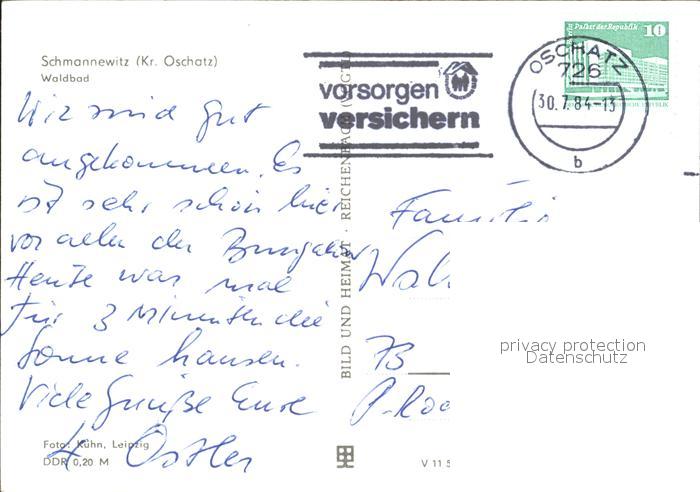 Schmannewitz (Kr. Oschatz)
Waldbad
Wir sind gut
angekommen. Es
ist sehr schön hier
vor allem der Bungalow
Heute war mal
für 3 Minuten die
Sonne
Viele Grüße Eure
4 Ostler
Foto: Kühn, Leipzig
DDR 0,20 M
BILD UND HEIMAT · REICHENBACH (VOGTL)
V 11 5
vorsorgen
versichern
OSCHATZ
726
30.7.84-13
b
Palast der Republik
10
Familie
73
privacy protection
Datenschutz